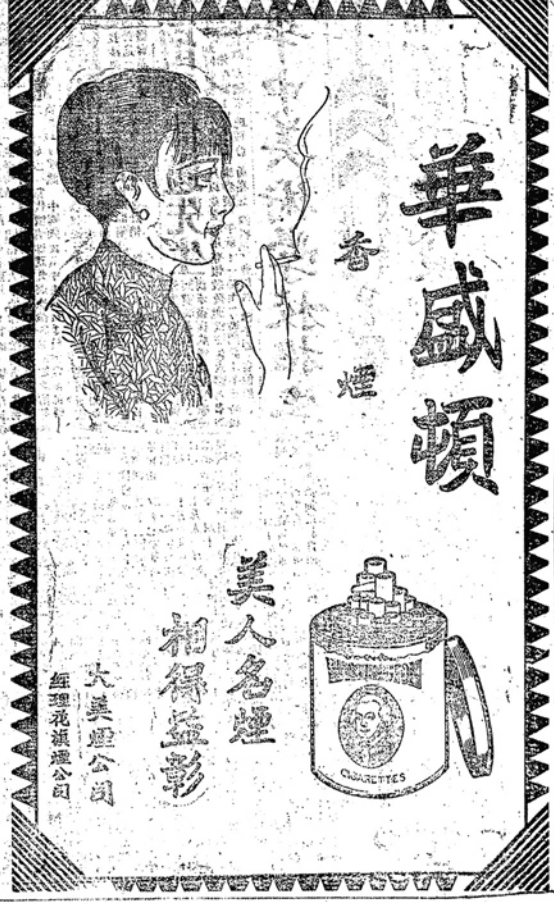 華盛頓
香煙
美人名煙
相得益彰
大美煙公司
經理花旗煙公司
CIGARETTES